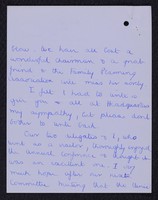 have all lost a
wonderful chairman & a great
friend & the Family Planning
Association will miss her sorely.
I felt I had to write &
give you & all at Headquarters
my sympathy, but please don't
bother to write back.
Our two delegates & I, who
went as a visitor, thoroughly enjoyed
the Annual Conference & thought it
was an excellent one. I very
much hope, after our next
Committee Meeting that the